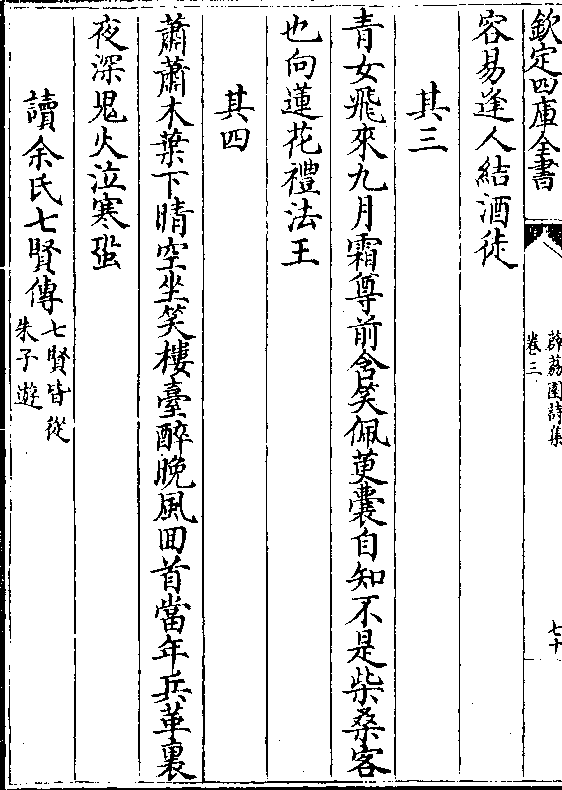 欽定四庫全書
薜荔園詩集
卷三
七十
容易逢人結酒徒
其三
青女飛來九月霜尊前含笑佩萸囊自知不是柴桑客
也向蓮花禮法王
其四
蕭蕭木葉下晴空坐笑樓臺醉晚風回首當年兵革裏
夜深鬼火泣寒蛩
讀余氏七賢傳七賢皆從
朱子遊